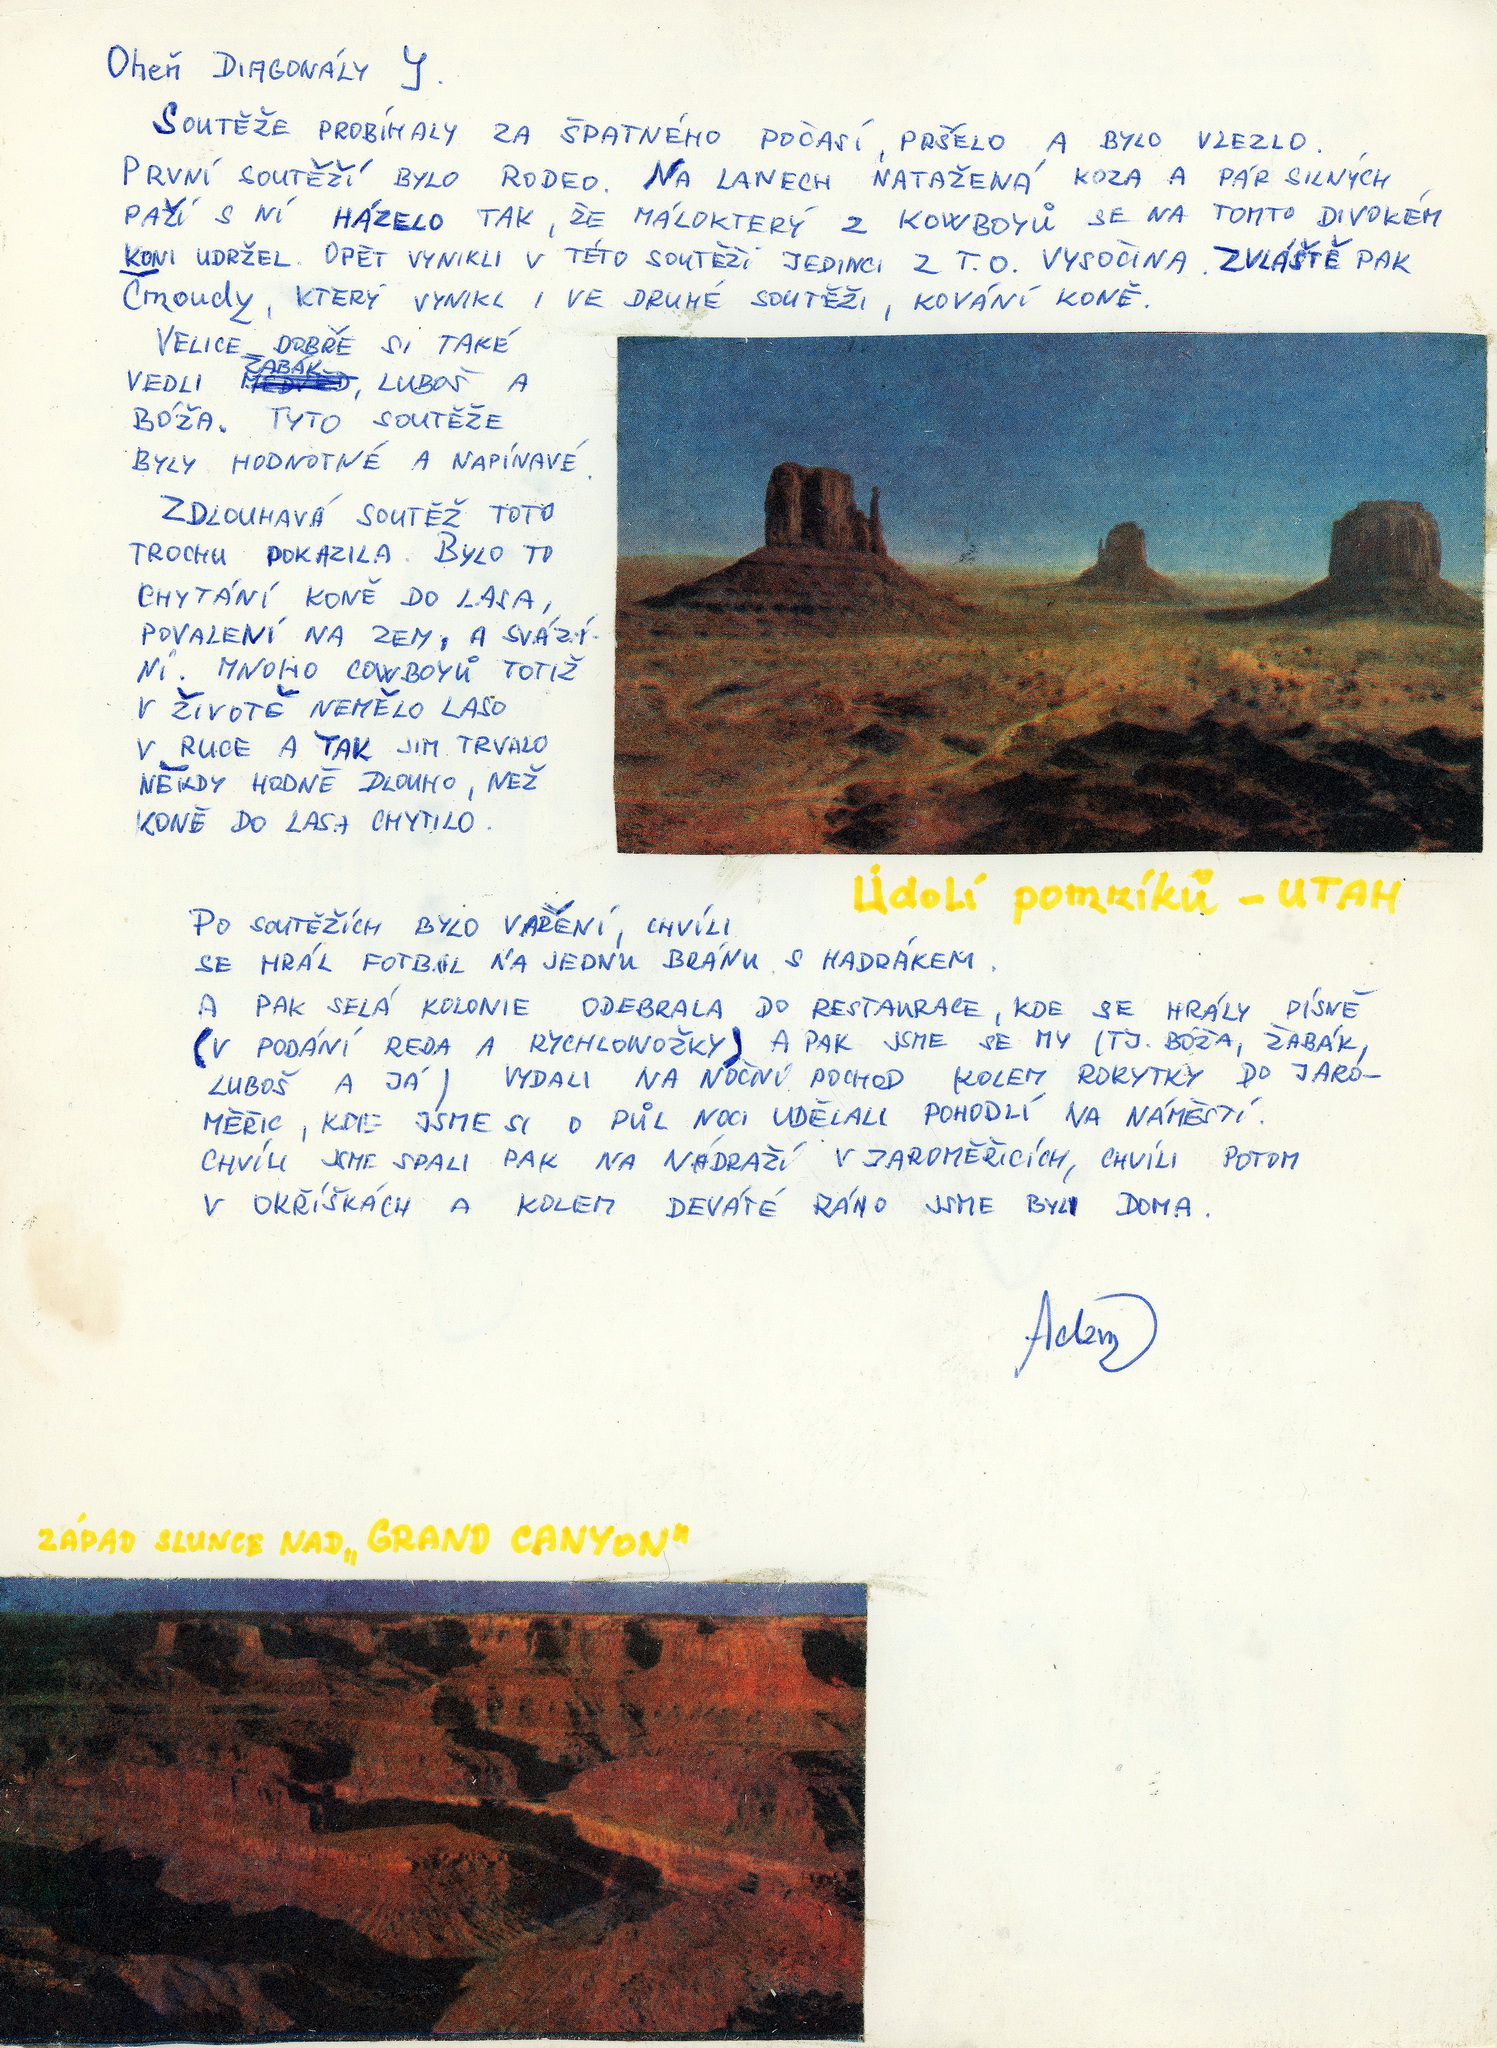 Oheň DIAGONÁLY Y.
SOUTĚŽE PROBÍHALY ZA ŠPATNÉHO POČASÍ, PRŠELO A BYLO VLEZLO.
PRVNÍ SOUTĚŽÍ BYLO RODEO. NA LANECH NATAŽENÁ KOZA A PÁR SILNÝCH
PAŽÍ S NÍ HÁZELO TAK, ŽE MÁLOKTERÝ Z KOWBOYŮ SE NA TOMTO DIVOKÉM
KONI UDRŽEL. OPĚT VYNIKLI V TÉTO SOUTĚŽI JEDINCI Z T.O. VYSOČINA. ZVLÁŠTĚ PAK
Čmoudy, KTERÝ VYNIKL I VE DRUHÉ SOUTĚŽI, KOVÁNÍ KONĚ.
VELICE DOBŘE SI TAKÉ
VEDLI ŽABÁK, LUBOŠ A
BÓŽA. TYTO SOUTĚŽE
BYLY HODNOTNÉ A NAPÍNAVÉ.
ZDLOUHAVÁ SOUTĚŽ TOTO
TROCHU POKAZILA. BYLO TO
CHYTÁNÍ KONĚ DO LASA,
POVALENÍ NA ZEM, A SVÁZÁ-
NÍ. MNOHO COWBOYŮ TOTIŽ
V ŽIVOTĚ NEMĚLO LASO
V RUCE A TAK JIM TRVALO
NĚKDY HODNĚ DLOUHO, NEŽ
KONĚ DO LASA CHYTILO.
Údolí pomníků - UTAH
PO SOUTĚŽÍCH BYLO VAŘENÍ, CHVÍLI
SE HRÁL FOTBAL NA JEDNU BRÁNU S HADRÁKEM.
A PAK SELÁ KOLONIE ODEBRALA DO RESTAURACE, KDE SE HRÁLY PÍSNĚ
(V PODÁNÍ REDA A RYCHLONOŽKY) A PAK JSME SE MY (TJ. BÓŽA, ŽABÁK,
LUBOŠ A JÁ) VYDALI NA NOČNÍ POCHOD KOLEM ROKYTKY DO JARO-
MĚŘIC, KDE JSME SI O PŮL NOCI UDĚLALI POHODLÍ NA NÁMĚSTÍ.
CHVÍLI JSME SPALI PAK NA NÁDRAŽÍ V JAROMĚŘICÍCH, CHVÍLI POTOM
V OKŘÍŠKÁCH A KOLEM DEVÁTÉ RÁNO JSME BYLI DOMA.
Adam
ZÁPAD SLUNCE NAD „GRAND CANYON"